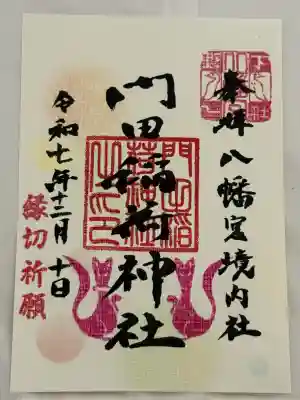 奉拝 八幡宮境内社
門田稲荷神社
令和七年十二月十日
縁切祈願